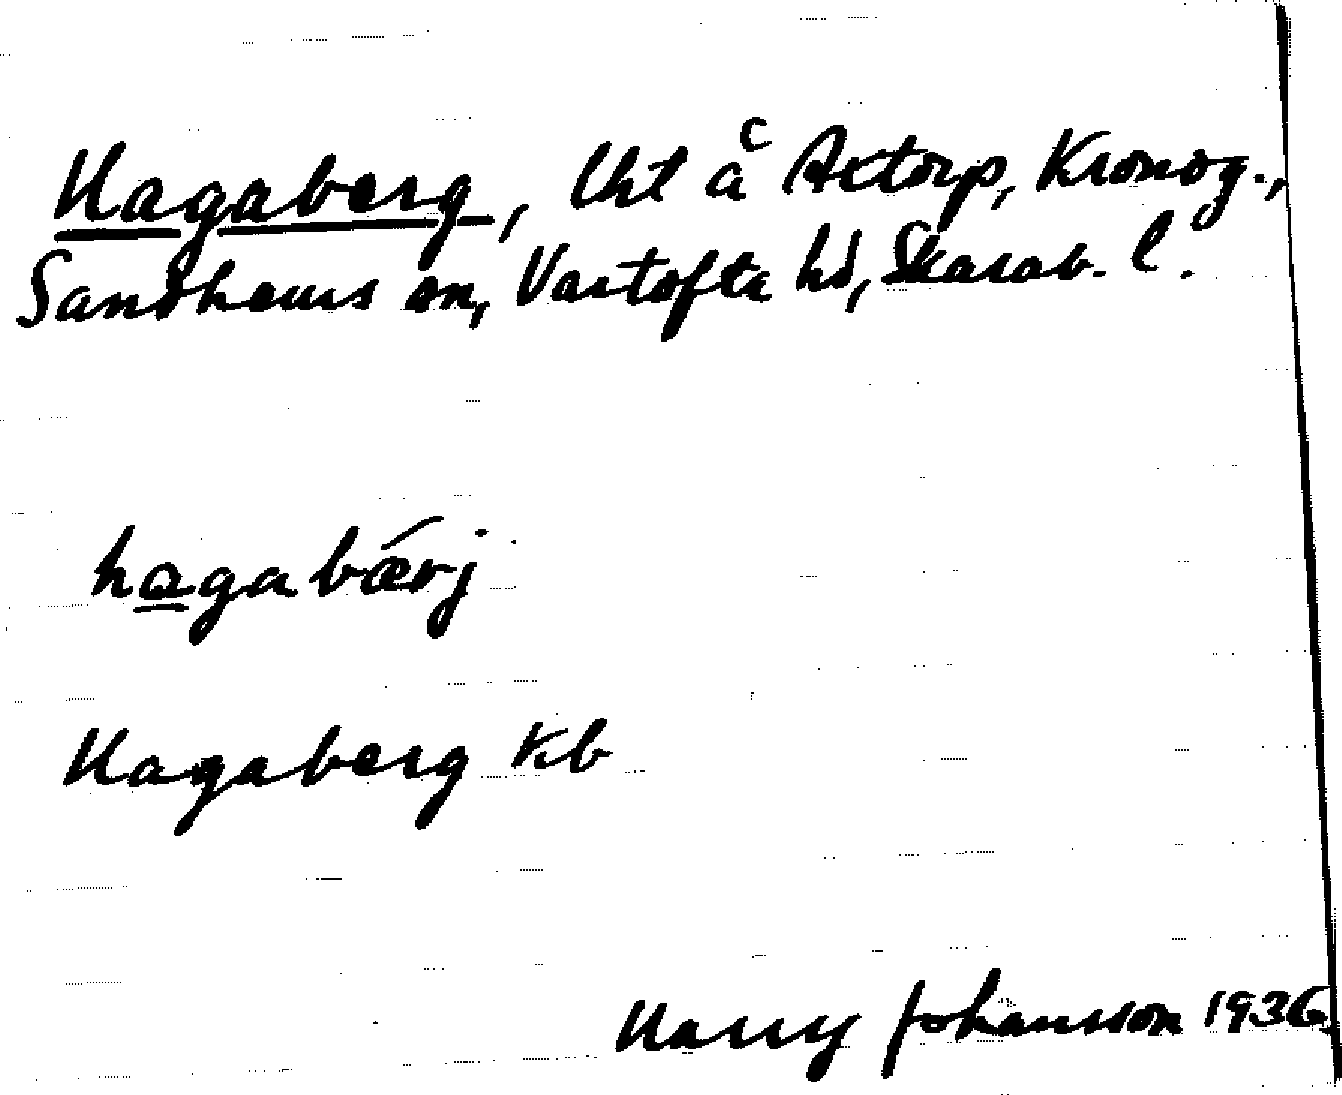 Hagaberg, lht å Axtorp, Kronog.,
Sandhems sn, Vartofta hd, Skarab. l.
hagabærj
Hagaberg Kb
Harry Johansson 1936